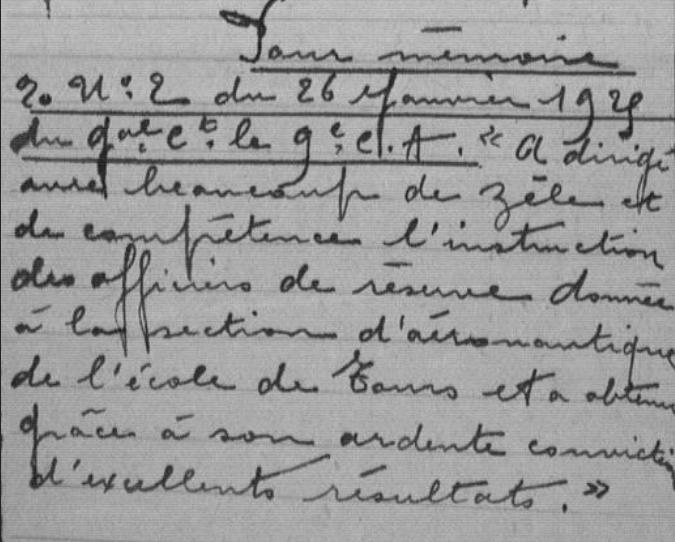 Pour mémoire
O. N°: 2 du 26 Janvier 1925
du Gal. Ct. le 9e. C.A. « A dirigé
avec beaucoup de zèle et
de compétence l'instruction
des officiers de réserve donnée
à la section d'aéronautique
de l'école de Tours et a obtenu
grâce à son ardente conviction
d'excellents résultats. »